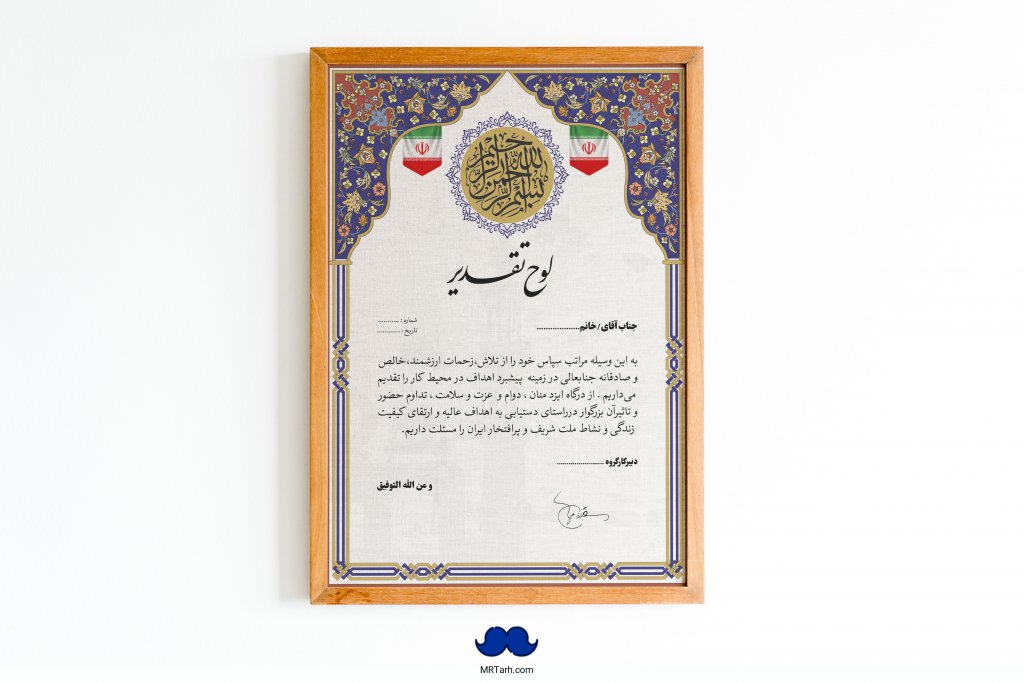 بسم الله الرحمن الرحیم
لوح تقدیر
شماره : ...........
تاریخ : ............
جناب آقای/خانم.....................
به این وسیله مراتب سپاس خود را از تلاش،زحمات ارزشمند،خالص
و صادقانه جنابعالی در زمینه پیشبرد اهداف در محیط کار را تقدیم
می‌داریم . از درگاه ایزد منان ، دوام و عزت و سلامت ، تداوم حضور
و تاثیرآن بزرگوار درراستای دستیابی به اهداف عالیه و ارتقای کیفیت
زندگی و نشاط ملت شریف و پرافتخار ایران را مسئلت داریم.
دبیرکارگروه .......................
و من الله التوفیق
MRTarh.com